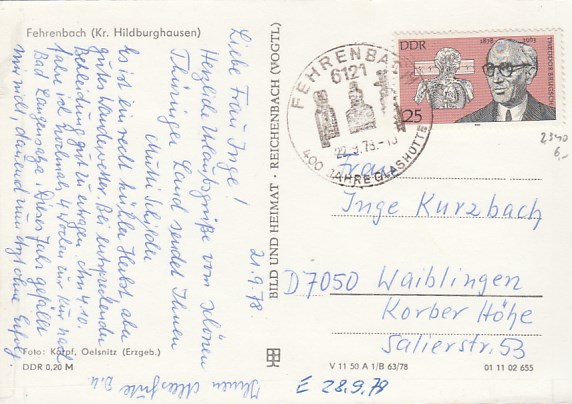 Fehrenbach (Kr. Hildburghausen)
21.9.78
Liebe Frau Inge!
Herzliche Urlaubsgrüße vom schönen
Thüringer Land sendet Ihnen
Es ist ein recht kühler Herbst, aber
gutes Wanderwetter. Bei entsprechender
Bekleidung gut zu ertragen. Am 4.10.
fahre ich nochmals 4 Wochen zur Kur nach
Bad Langensalza. Dieses Jahr gefällt
mir nicht, dauernd zum Arzt ohne Erfolg.
Ihnen alles Gute
Foto: Kämpf, Oelsnitz (Erzgeb.)
DDR 0,20 M
BILD UND HEIMAT · REICHENBACH (VOGTL)
FEHRENBACH
6121
22.9.78
400 JAHRE GLASHÜTTE
DDR
1878 1963
THEODOR BRUGSCH
25
2340
6,-
Frau
Inge Kurzbach
D7050 Waiblingen
Korber Höhe
Salierstr. 53
V 11 50 A 1/B 63/78
01 11 02 655
E 28.9.79